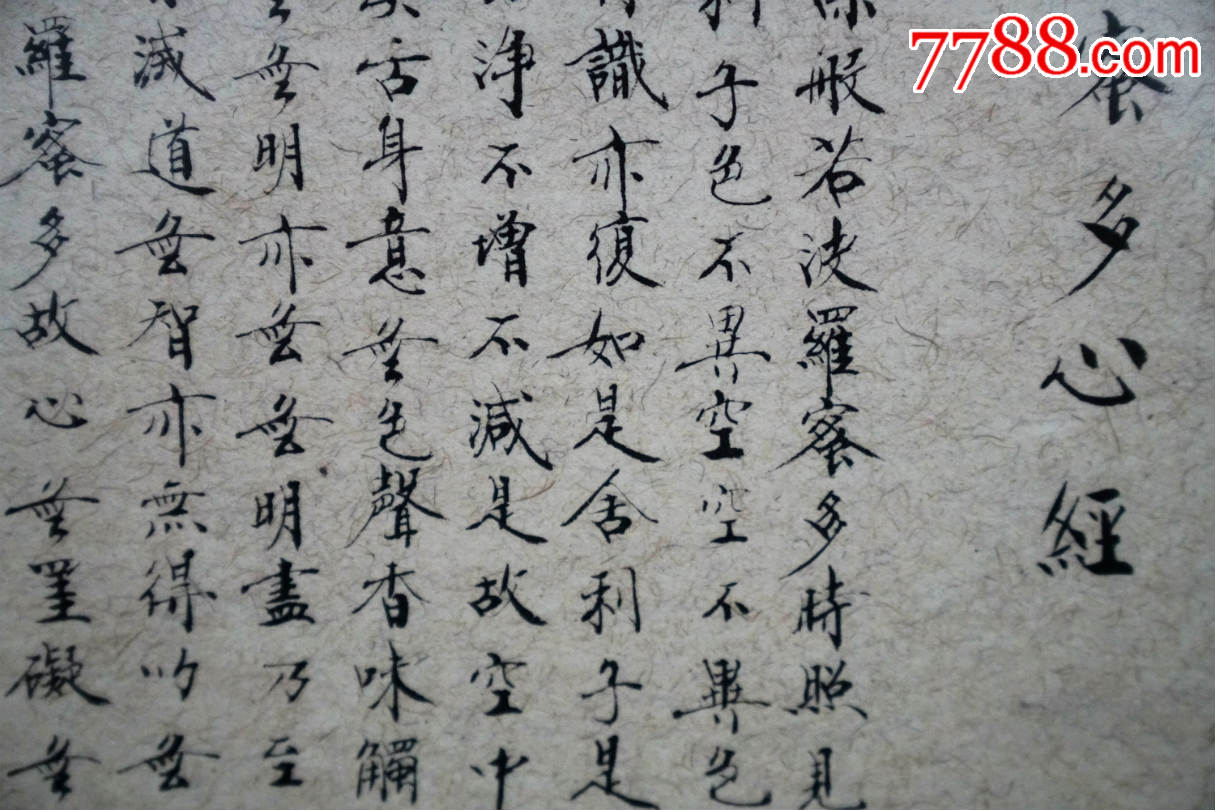 7788.com
蜜多心經
深般若波羅蜜多時照見
利子色不異空空不異色
識亦復如是舍利子是
淨不增不減是故空中
舌身意無色聲香味觸
無明亦無無明盡乃至
滅道無智亦無得以無
羅蜜多故心無罣礙無